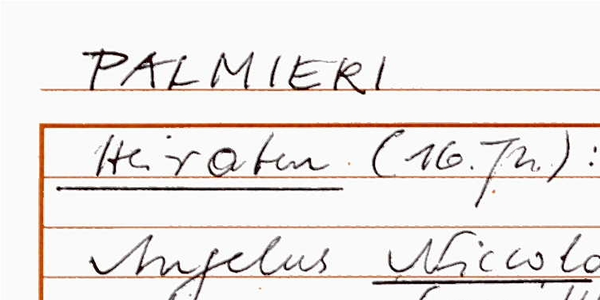 PALMIERI
Heiraten (16. Jh.):
Angelus Niccolo